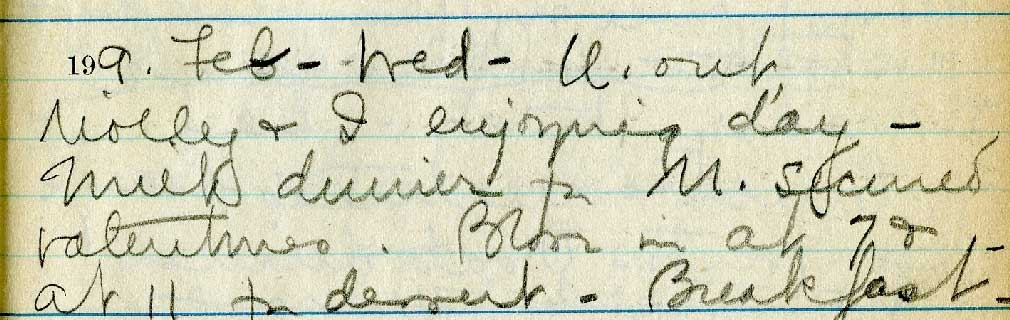 199. Feb - Wed - U. out
Molly & I enjoying day -
Milk dinner for M. secured
valentines. Blow in at 7 &
at 11 for dessert - Breakfast -